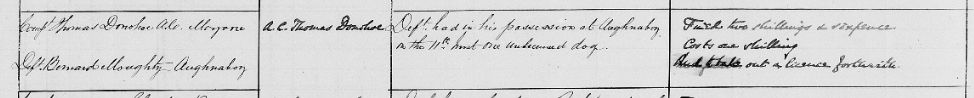 Compt Thomas Donohoe A.C. Moyne
Deft Bernard Moughty Aughnaboy
A.C. Thomas Donohoe
Deft had in his possession at Aughnaboy
on the 11th inst one unlicensed dog
Fined two shillings & sixpence
Costs one shilling
And to take out a licence forthwith